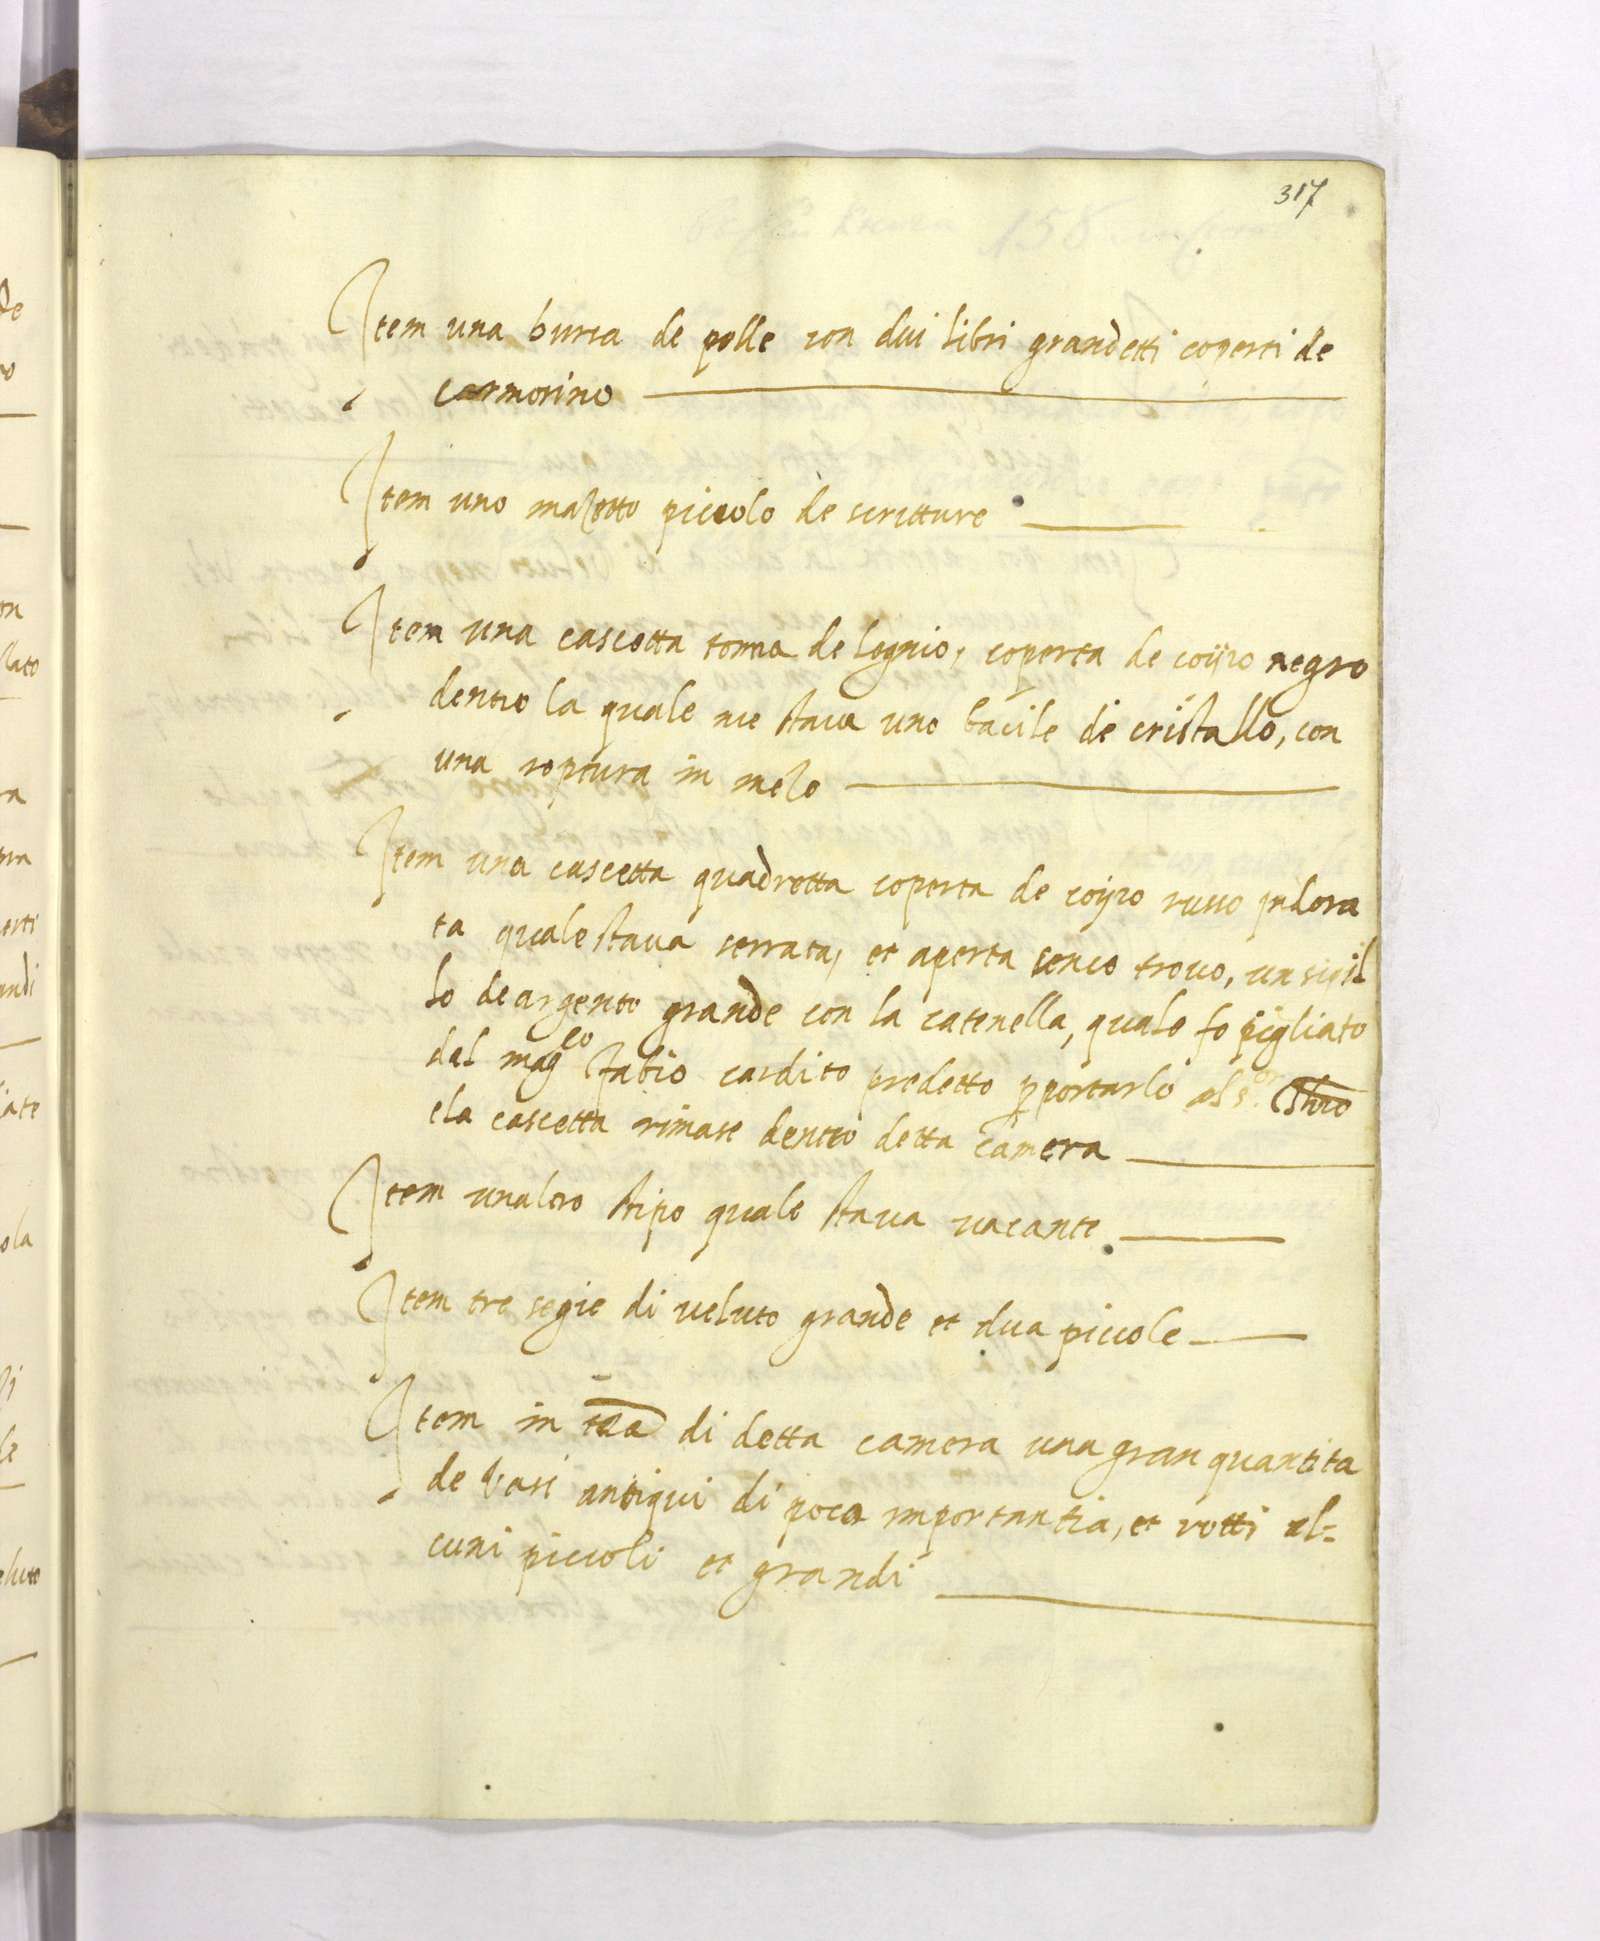 317
Item una burza de pelle con dui libri grandetti coperti de
carmosino
Item uno mazetto piccolo de scritture
Item una cascetta tonna de legnio, coperta de coijro negro
dentro la quale nce stava uno bacile de cristallo, con
una roptura in mezo
Item una cascetta quadretta coperta de coijro russo indora
ta quale stava serrata, et aperta sence trovo, un sigil
lo de argento grande con la catenella, quale fo pigliato
dal mag.co Fabio cardito predetto p portarlo al s.or
ela cascetta rimase dentro detta camera
Item unaltro stipo quale stava vacante
Item tre segie di veluto grande et dua piccole
Item in di detta camera una gran quantita
de vasi antiqui di poca importantia, et rotti al=
cuni piccoli et grandi